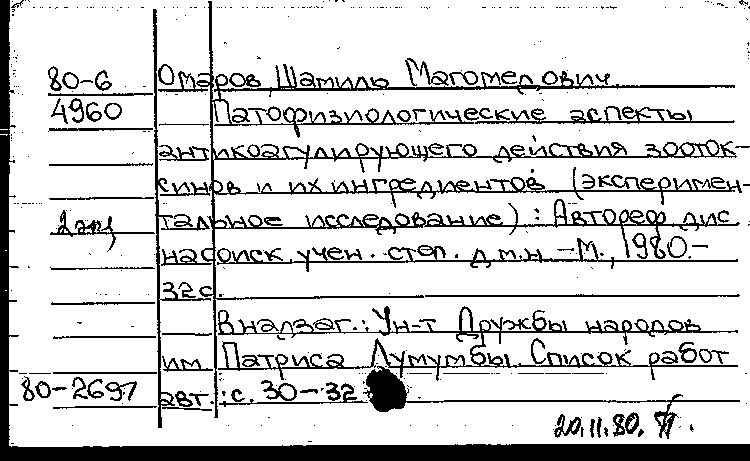 80-6 Омаров, Шамиль Магомедович.
4960 Патофизиологические аспекты
антикоагулирующего действия зооток-
синов и их ингредиентов (эксперимен-
2 экз тальное исследование) : Автореф дис
на соиск. учен. степ. д.м.н. -М., 1980.-
32 с.
В надзаг.: Ун-т Дружбы народов
им Патриса Лумумбы. Список работ
80-2697 авт.: с. 30-32
20.11.80.